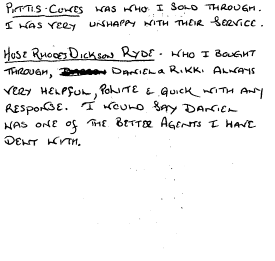 PITTIS-COWES WAS WHO I SOLD THROUGH.
I WAS VERY UNHAPPY WITH THEIR SERVICE.
HOSE RHODES DICKSON RYDE - WHO I BOUGHT
THROUGH, DANIEL & RIKKI ALWAYS
VERY HELPFUL, POLITE & QUICK WITH ANY
RESPONSE. I WOULD SAY DANIEL
WAS ONE OF THE BETTER AGENTS I HAVE
DELT WITH.